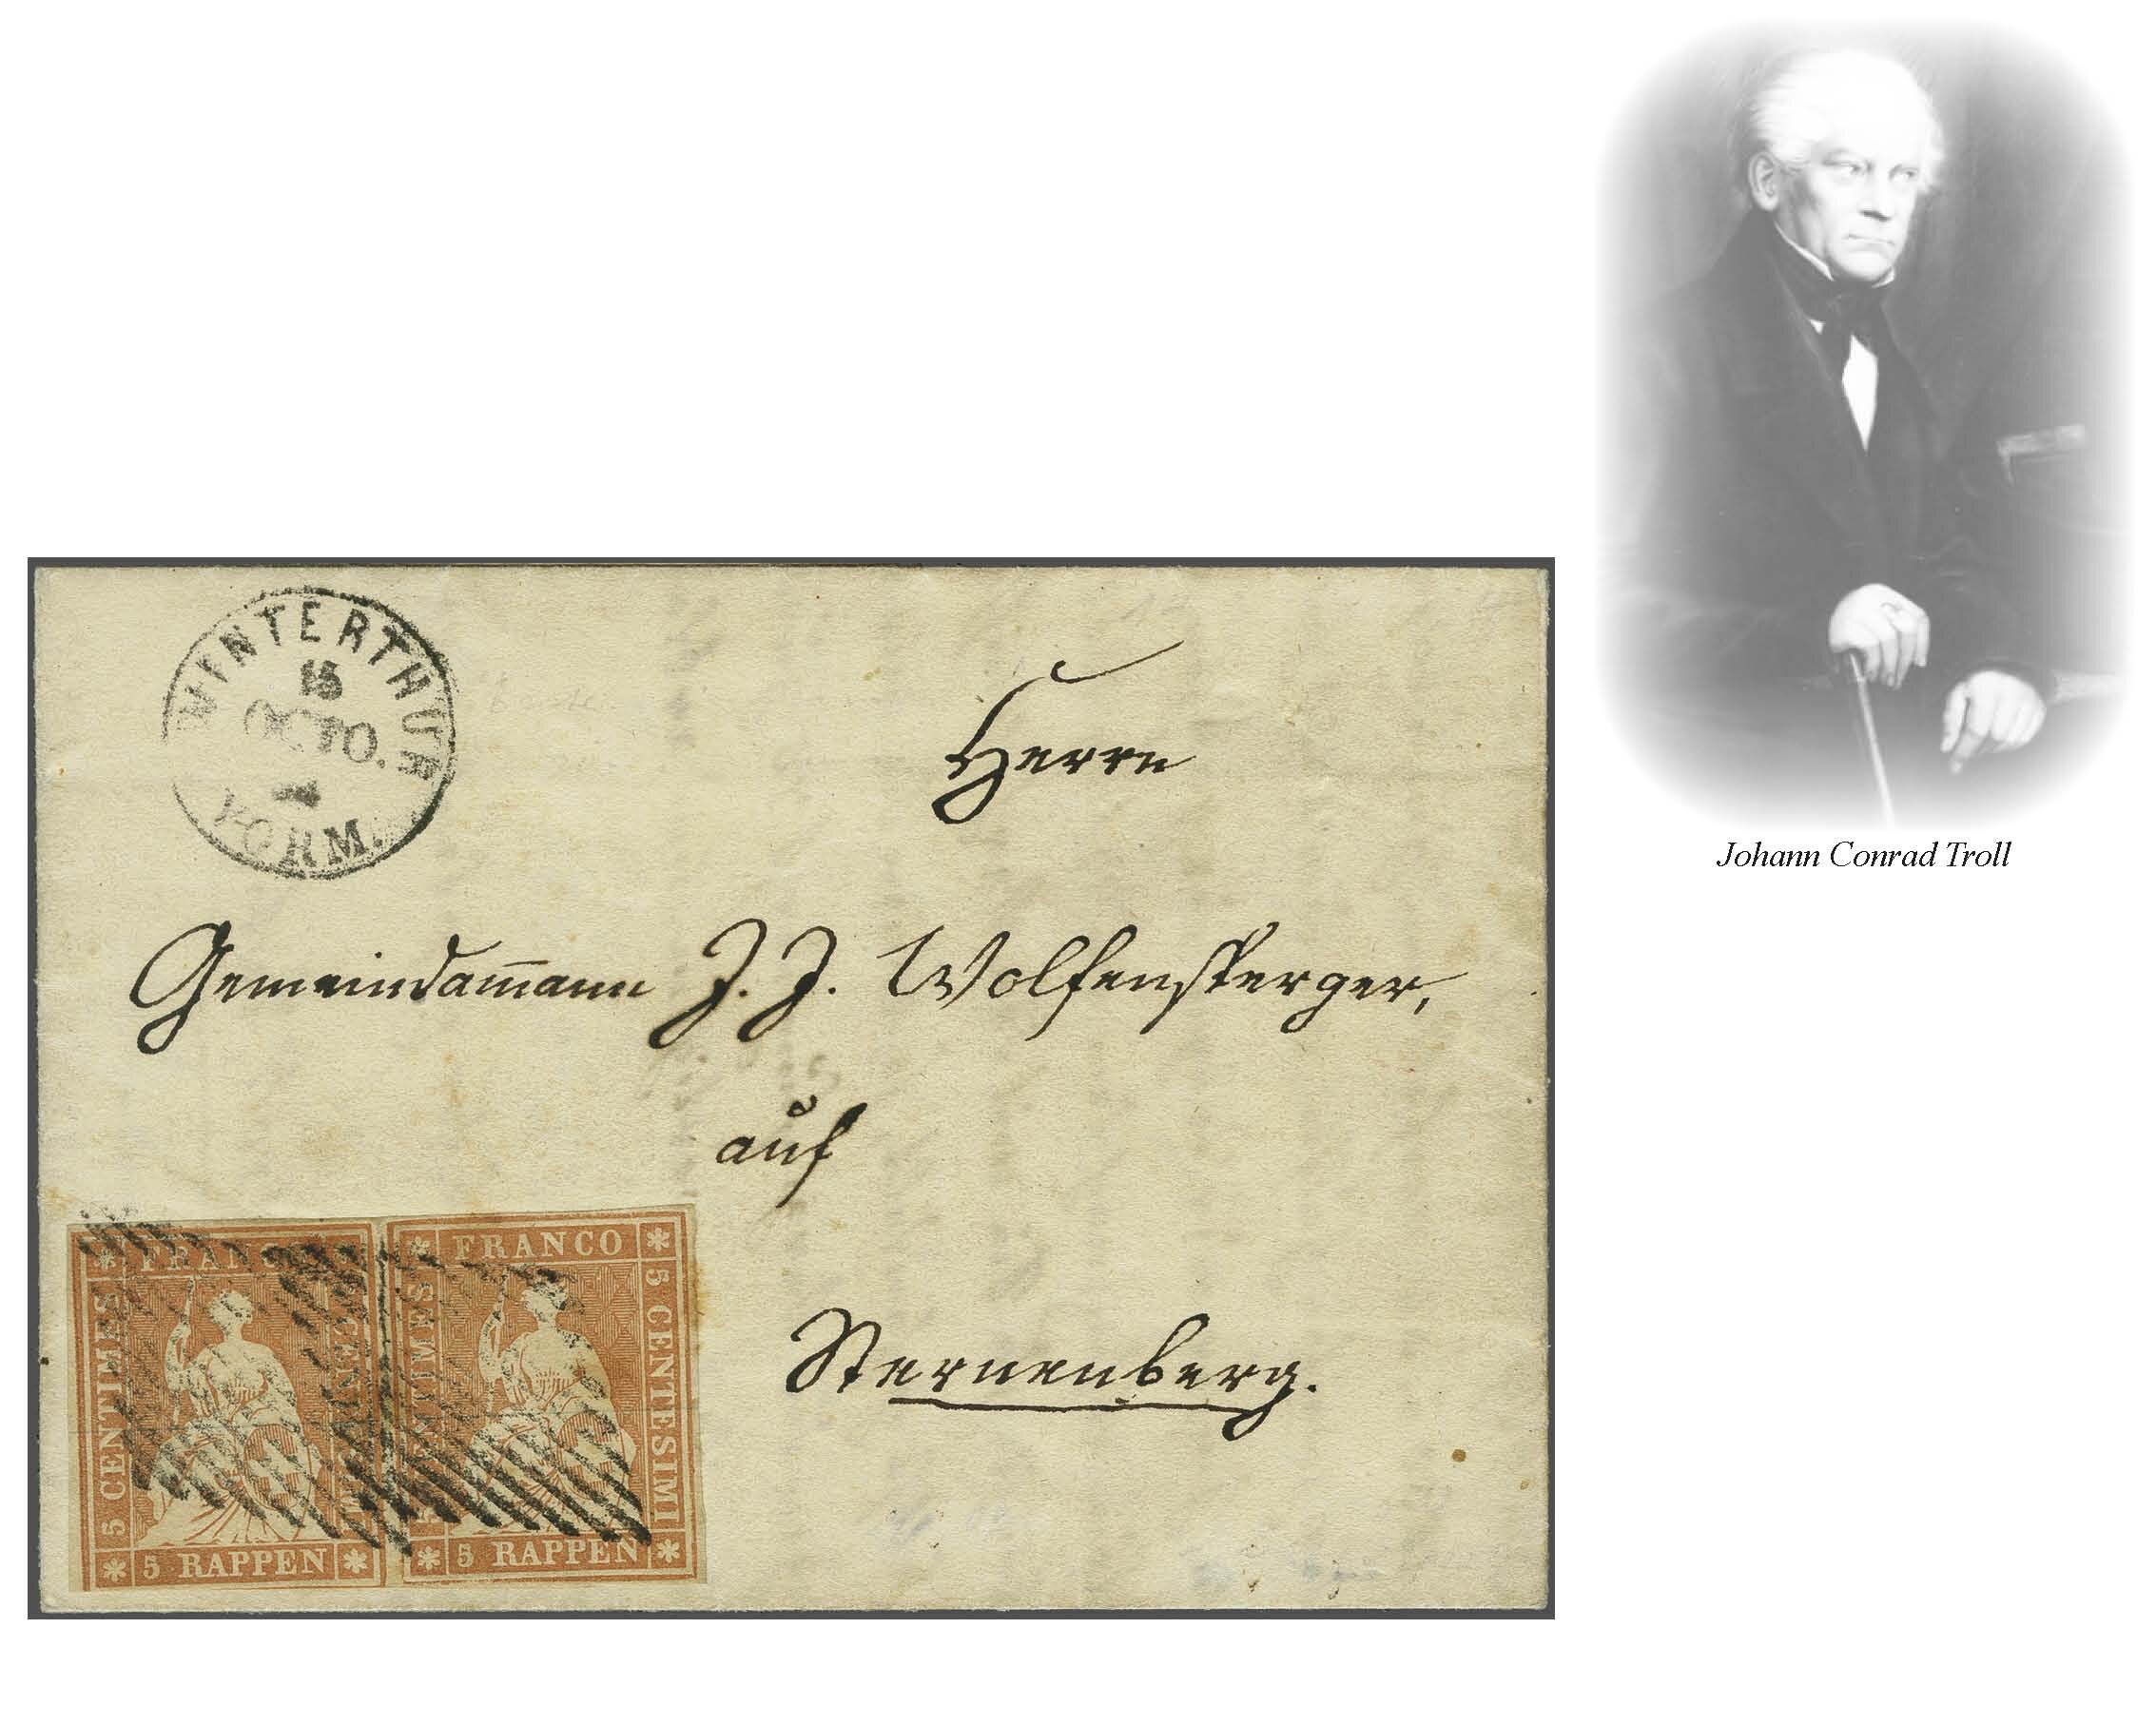 WINTERTHUR
15
OCTO.
VORM.
Herrn
Gemeindam̄ann J. J. Wolfensperger,
auf
Sternenberg.
FRANCO
5 CENTIMES
5 RAPPEN
FRANCO
5 CENTESIMI
5 RAPPEN
Johann Conrad Troll